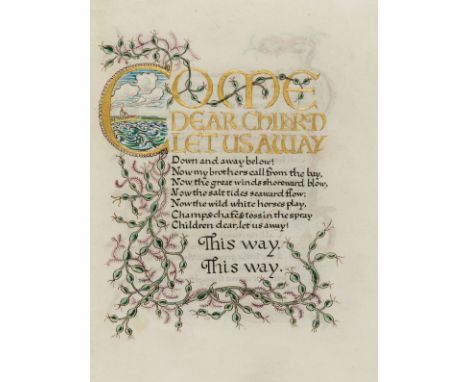 COME
DEAR CHILDREN
LET US AWAY
Down and away below!
Now my brothers call from the bay,
Now the great winds shoreward blow,
Now the salt tides seaward flow;
Now the wild white horses play,
Champ & chafe & toss in the spray
Children dear, let us away!
This way,
This way,